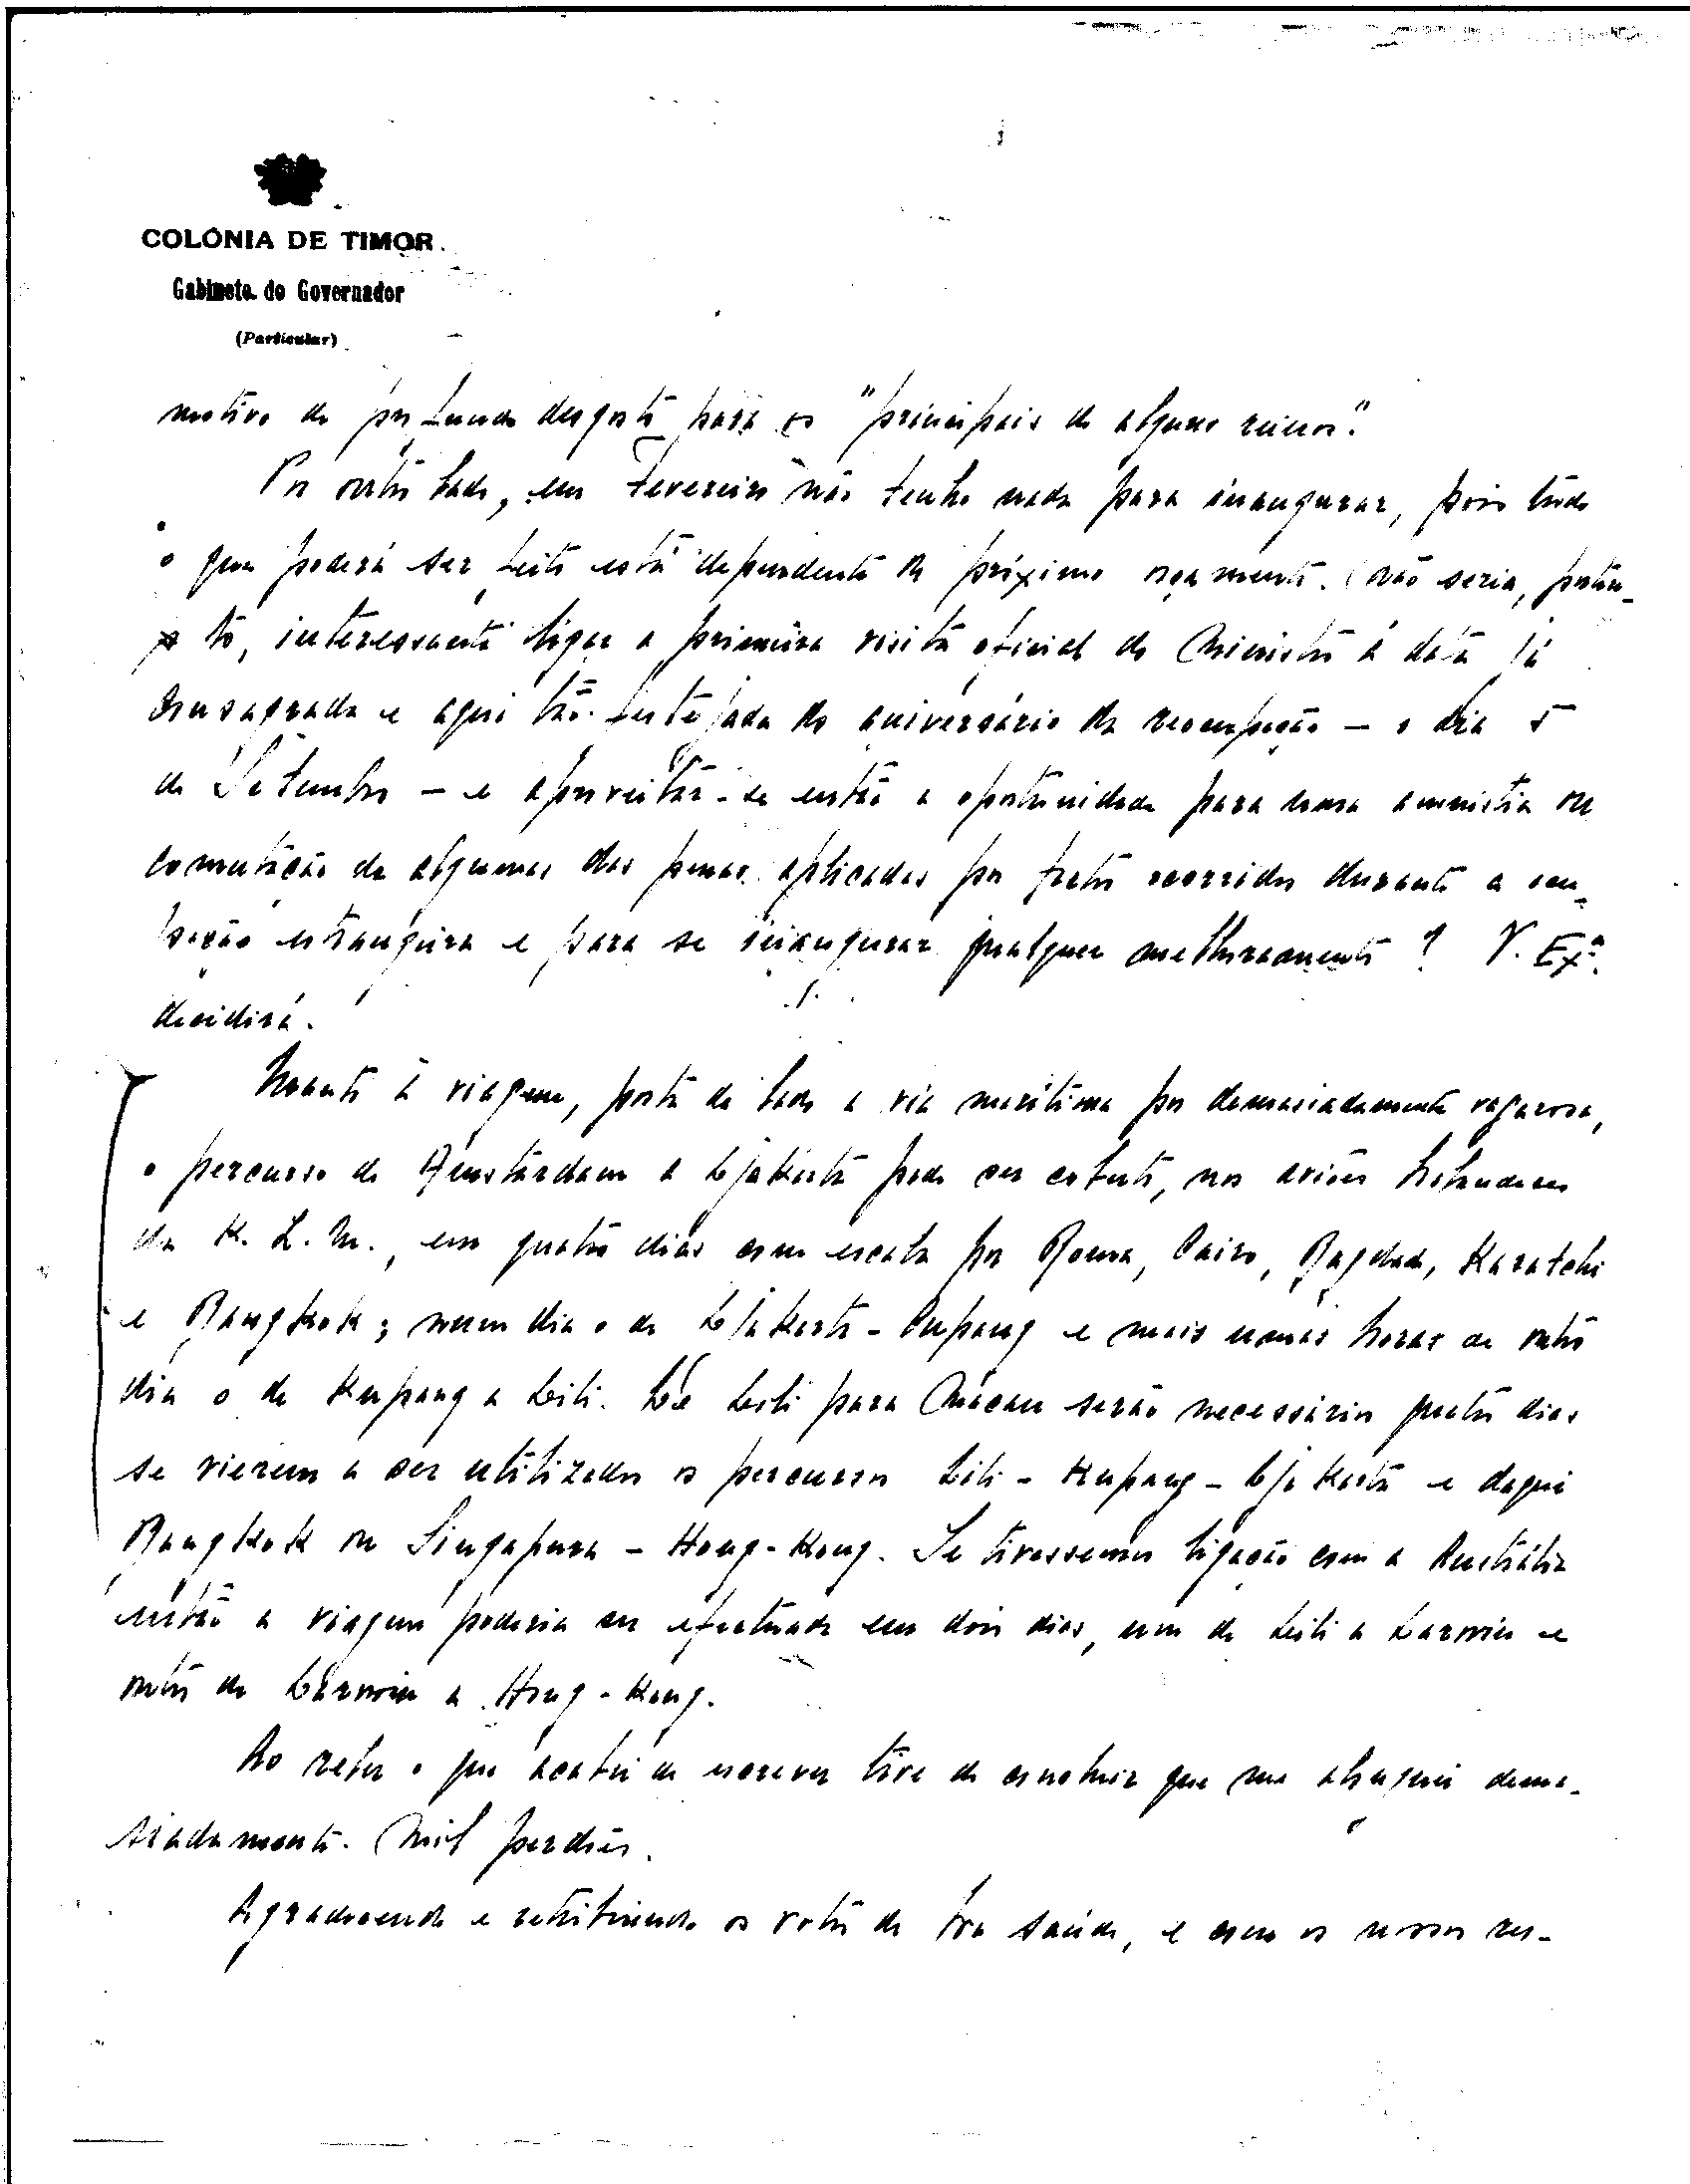 COLÓNIA DE TIMOR
Gabinete do Governador
(Particular)
motivo de profundo desgosto para os "principais de alguns reinos".
Por outro lado, em Fevereiro não tenho nada para inaugurar, pois tudo
o que poderá ser feito está dependente do próximo orçamento. Não seria, portan-
to, interessante ligar a primeira visita oficial do Ministro á data já
consagrada e aqui tão festejada do aniversário da reocupação - o dia 5
de Setembro - e aproveitar-se então a oportunidade para uma amnistia ou
comutação de algumas das penas aplicadas por factos ocorridos durante a ocu-
pação estrangeira e para se inaugurar qualquer melhoramento? V. Exª.
decidirá.
Quanto á viagem, posta de lado a via marítima por demasiadamente vagarosa,
o percurso de Amstardam a Djakarta pode ser coberto, nos aviões holandeses
da K. L. M., em quatro dias com escala por Roma, Cairo, Bagdad, Karatchi
e Bangkok; num dia o de Djakarta - Cupang e mais umas horas de outro
dia o de Kupang a Dili. De Dili para Macau serão necessários quatro dias
se vierem a ser utilizados os percursos Dili - Kupang - Djakarta e daqui
Bangkok ou Singapura - Hong-Kong. Se tivessemos ligação com a Austrália
então a viagem poderia ser efectuada em dois dias, um de Dili a Darwin e
outro de Darwin a Hong-Kong.
Ao reler o que acabei de escrever tive de concluir que me alarguei dema-
siadamente. Mil perdões.
Agradecendo e retribuindo os votos de boa saúde, e com os nossos res-